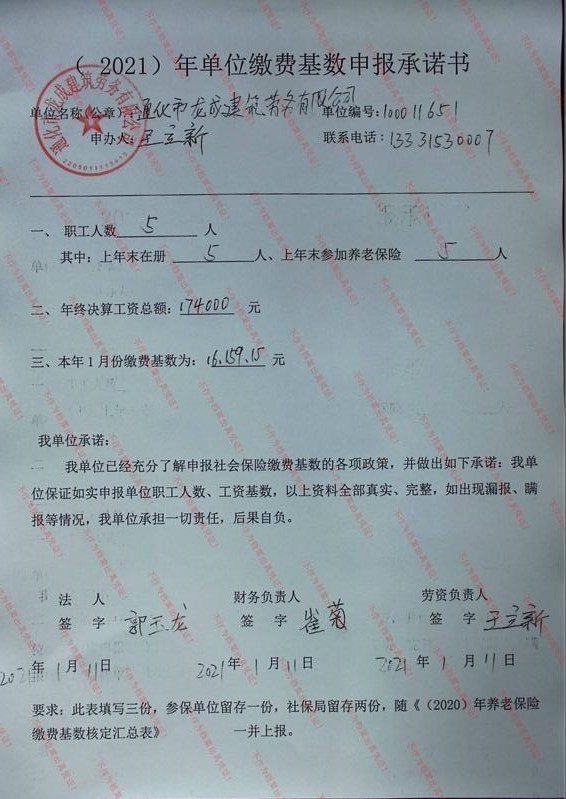 （ 2021）年单位缴费基数申报承诺书
单位名称（公章）：通化市龙成建筑劳务有限公司 单位编号：100011651
申办人：王立新 联系电话：13331530007
一、 职工人数 5 人
其中：上年末在册 5 人、上年末参加养老保险 5 人
二、年终决算工资总额：174000 元
三、本年1月份缴费基数为：16.159.15 元
我单位承诺：
我单位已经充分了解申报社会保险缴费基数的各项政策，并做出如下承诺：我单
位保证如实申报单位职工人数、工资基数，以上资料全部真实、完整，如出现漏报、瞒
报等情况，我单位承担一切责任，后果自负。
法 人 财务负责人 劳资负责人
签 字 郭玉龙 签 字 崔菊 签 字 王立新
2021年 1月 11日 2021年 1月 11日 2021年 1月 11日
要求：此表填写三份，参保单位留存一份，社保局留存两份，随《（2020）年养老保险
缴费基数核定汇总表》 一并上报。
通化市龙成建筑劳务有限公司
2205011113413